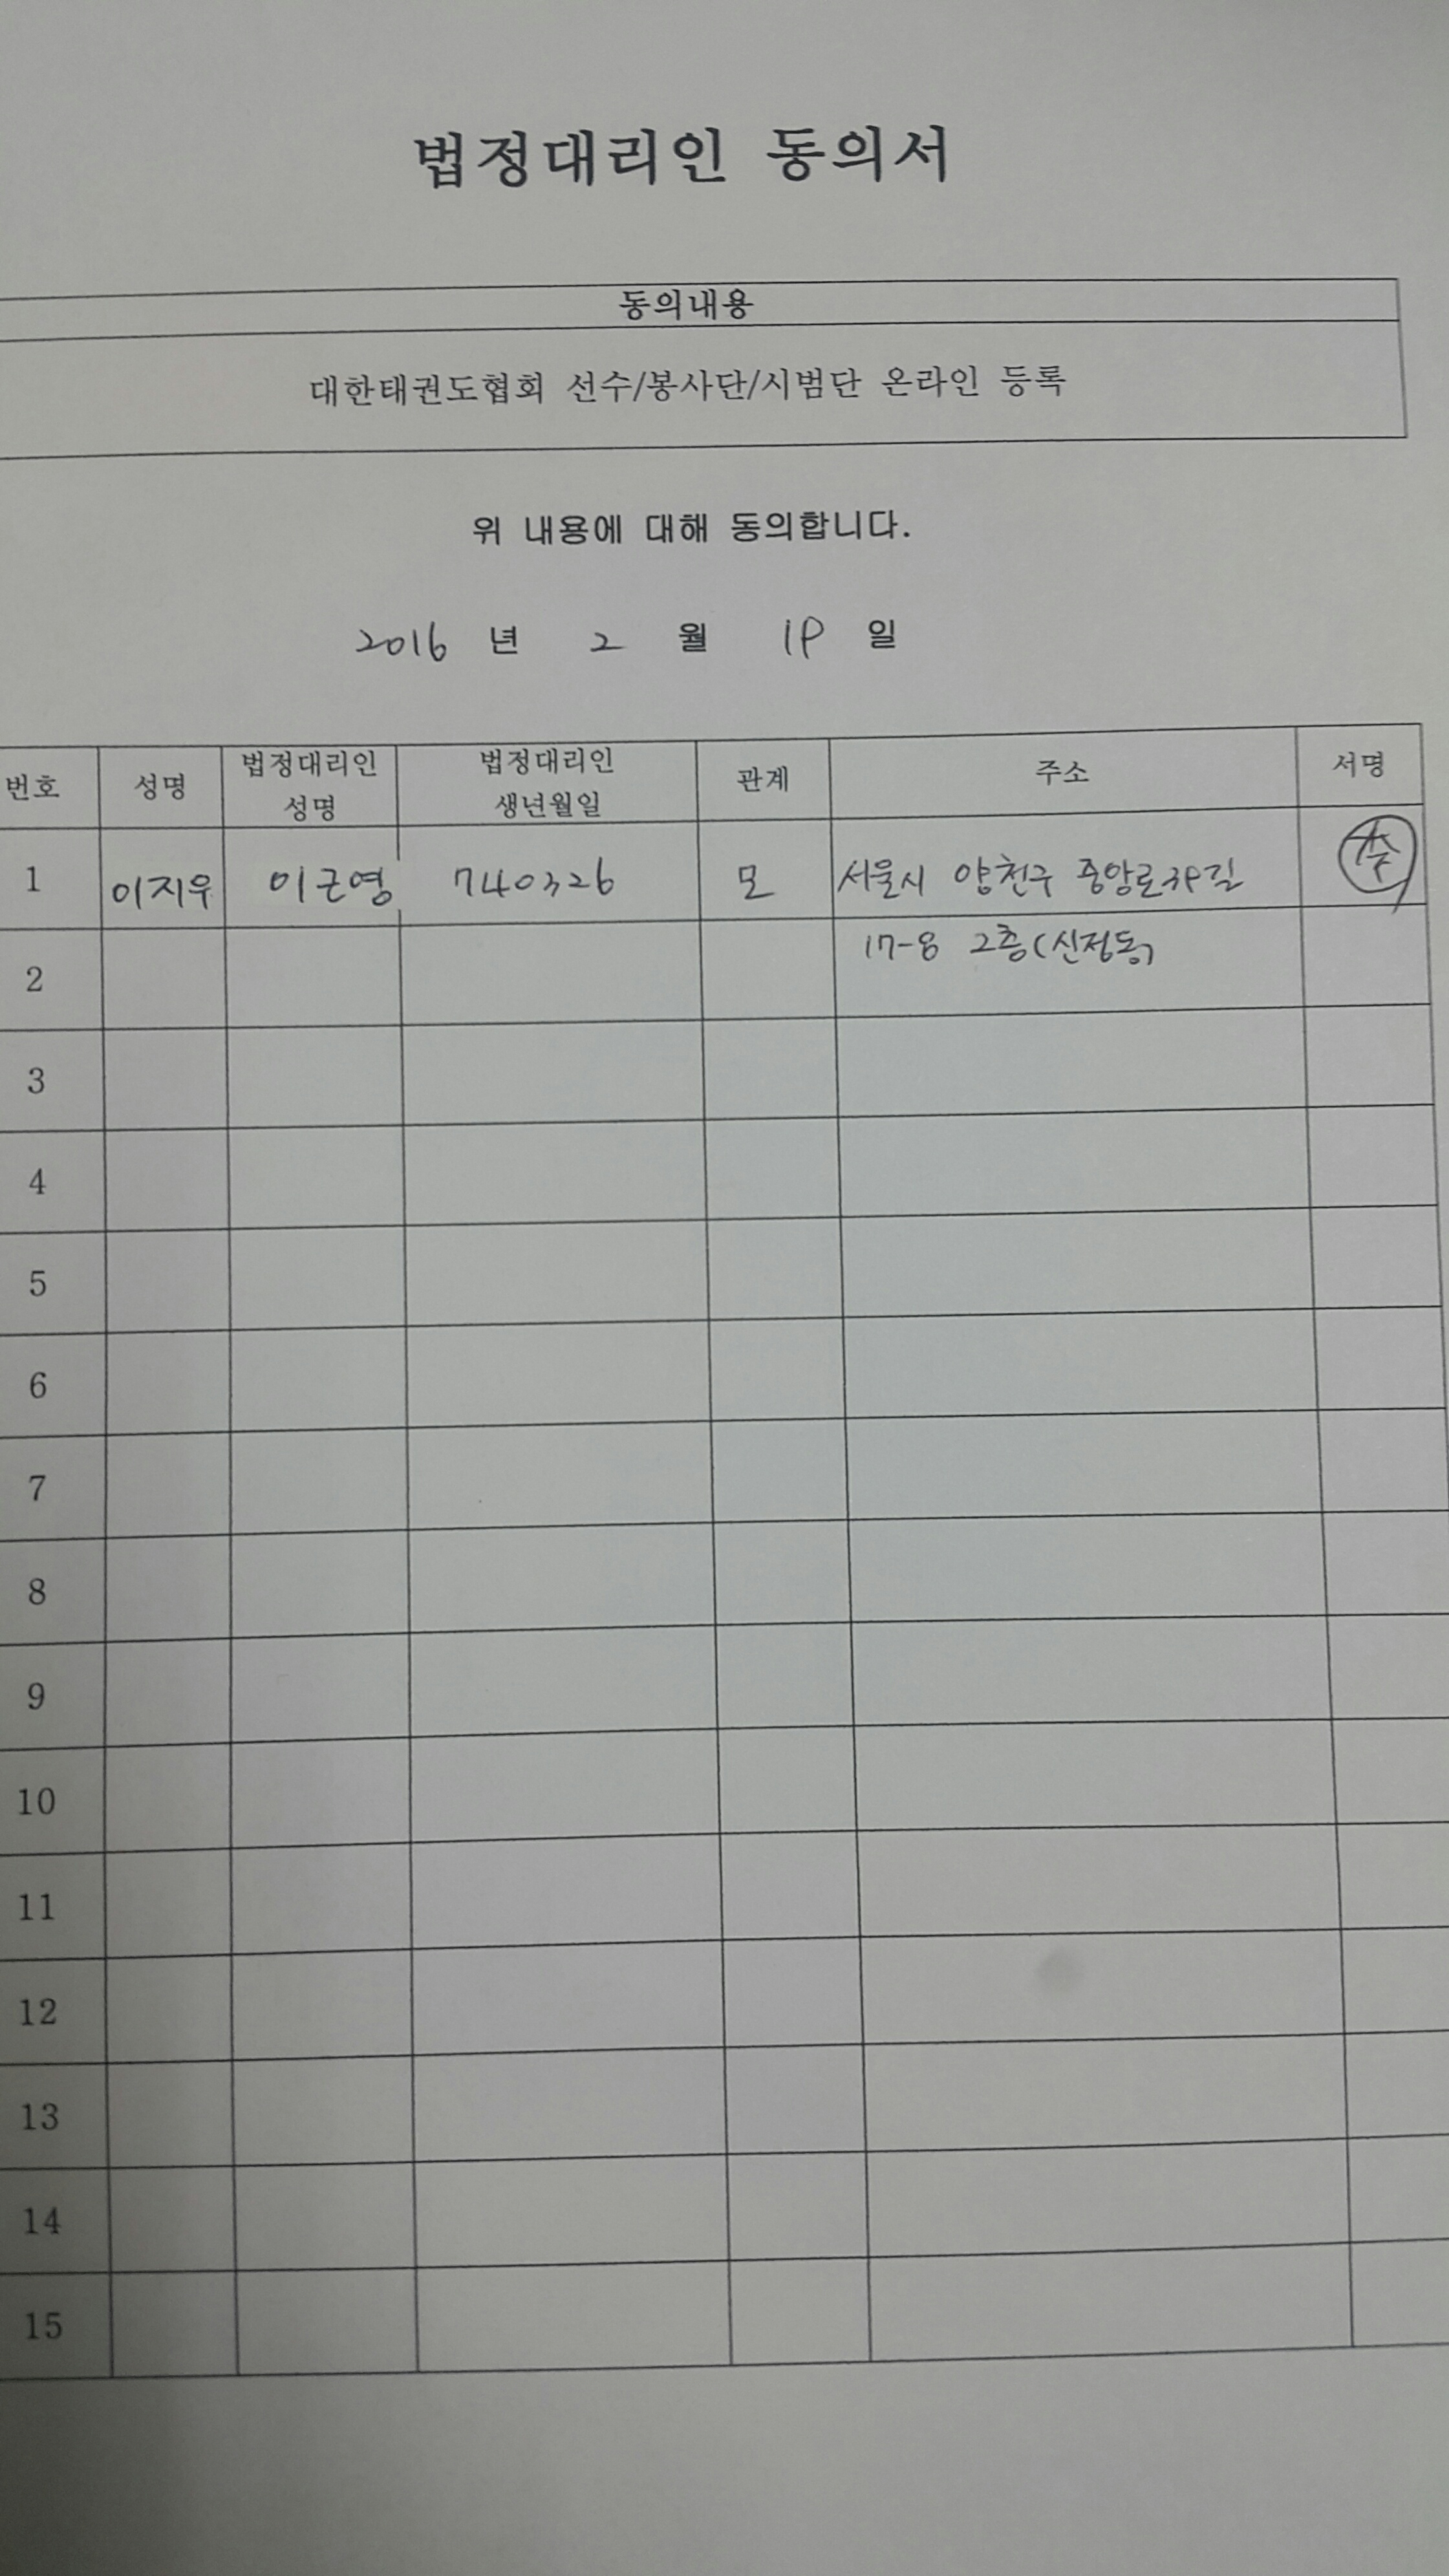 법정대리인 동의서
동의내용
대한태권도협회 선수/봉사단/시범단 온라인 등록
위 내용에 대해 동의합니다.
2016 년 2 월 19 일
번호 성명 법정대리인 성명 법정대리인 생년월일 관계 주소 서명
1 이지우 이근영 740326 모 서울시 양천구 중앙로39길
2 17-8 2층(신정동)
3
4
5
6
7
8
9
10
11
12
13
14
15